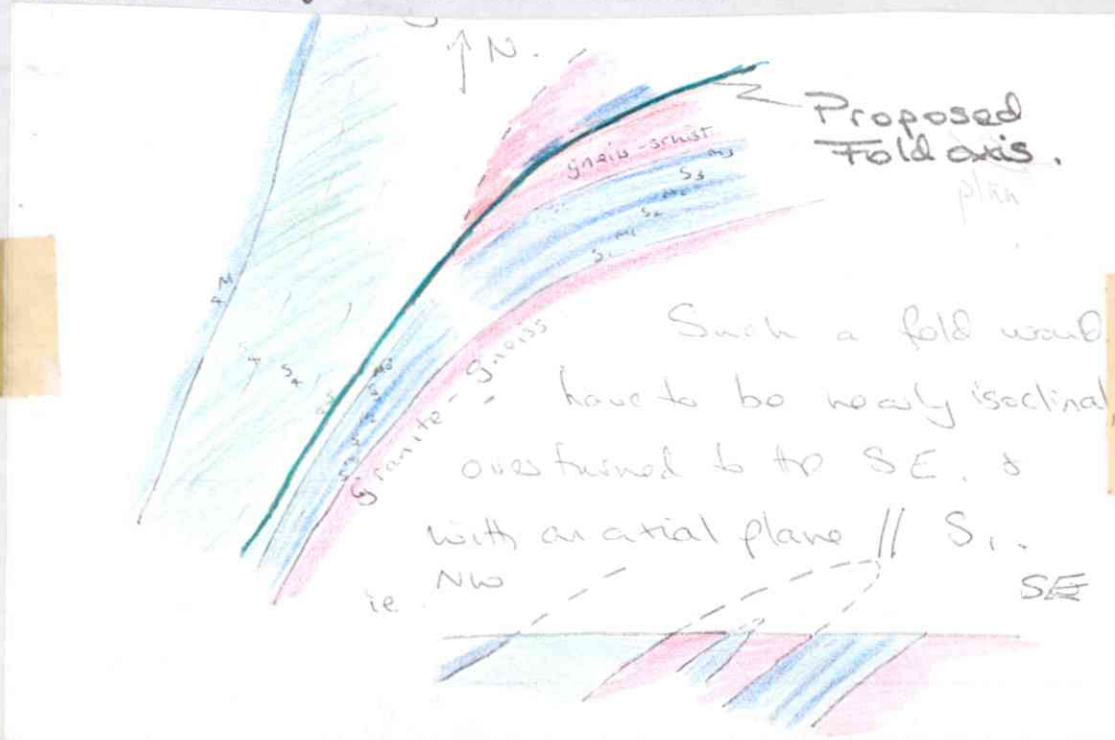 N.
Proposed
Fold axis.
plan
gneiss-schist
M3
S3
M2
S2
M1
S1
M4
Granite-gneiss
Such a fold would
have to be nearly isoclinal,
overturned to the SE. &
with an axial plane // S1.
ie. NW SE